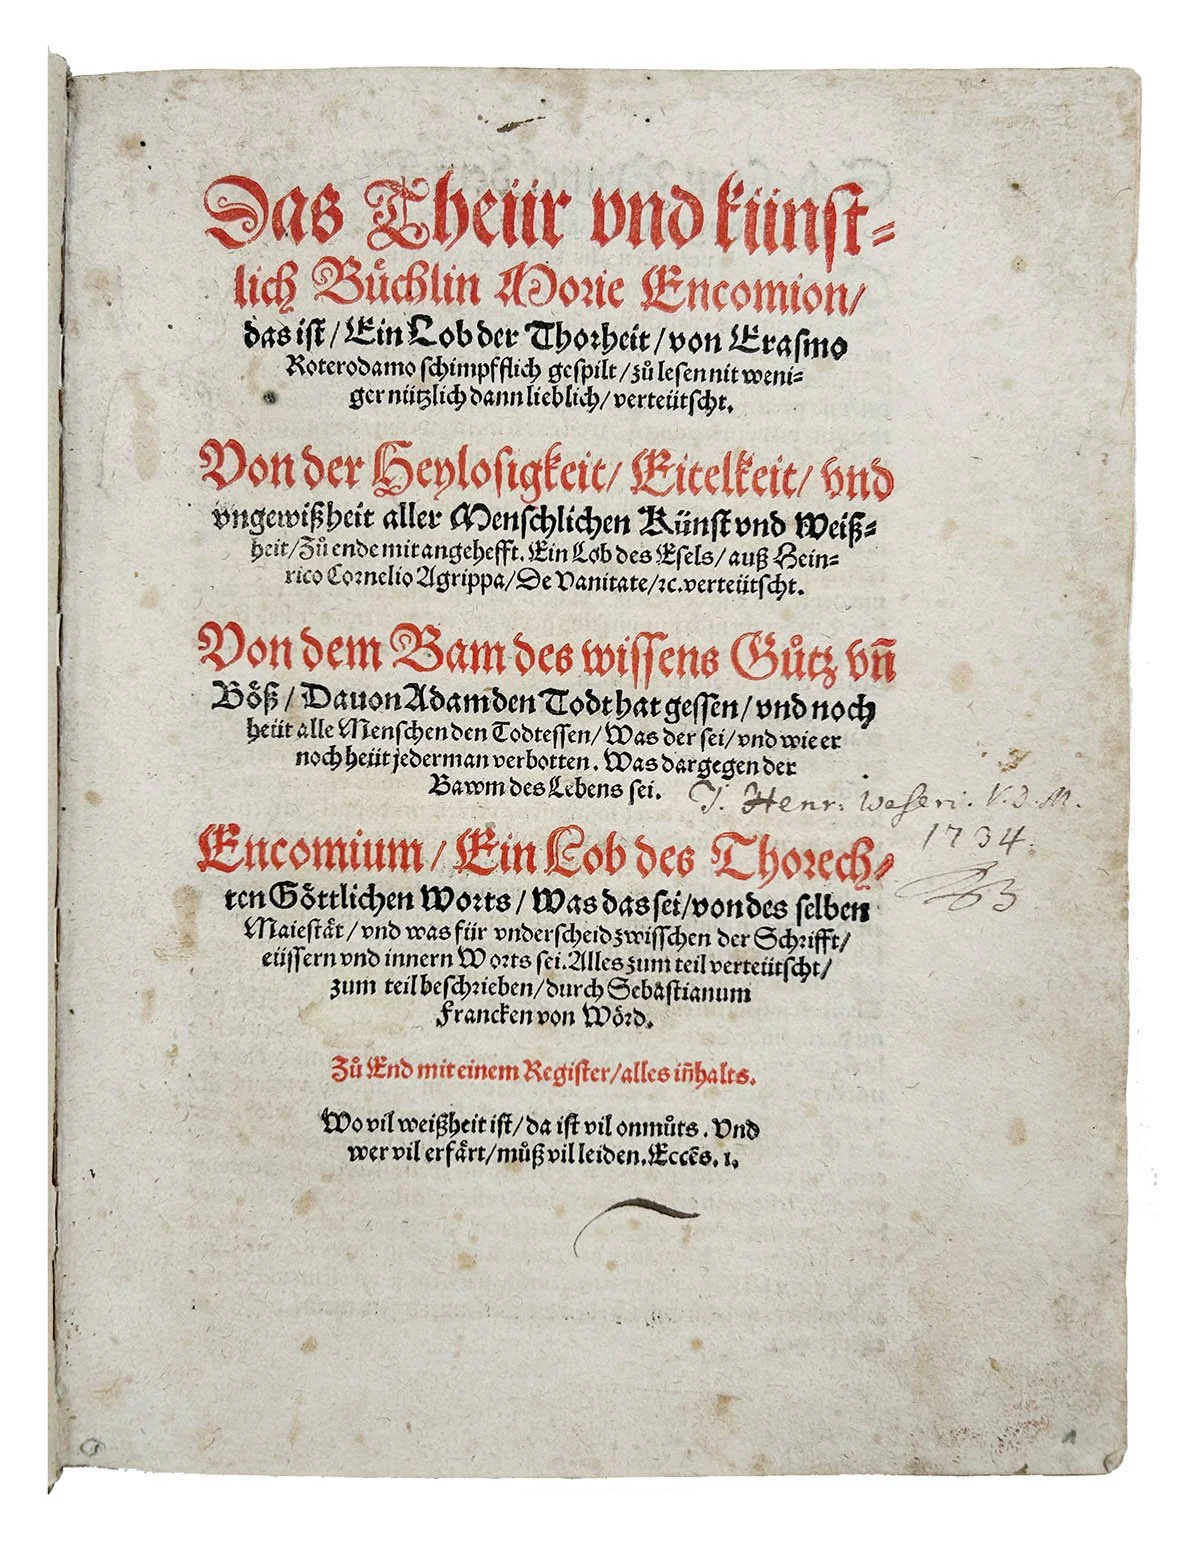 Das Theür vnd künst⸗
lich Buͤchlin Morie Encomion/
das ist/ Ein Lob der Thorheit/ von Erasmo
Roterodamo schimpfflich gespilt/ zuͦ lesen nit weni⸗
ger nützlich dann lieblich/ verteütscht.
Von der Heylosigkeit/ Eitelkeit/ vnd
vngewißheit aller Menschlichen Künst vnd Weiß⸗
heit/ Zuͦ ende mit angehefft. Ein Lob des Esels/ auß Hein⸗
rico Cornelio Agrippa/ De Vanitate/ ꝛc. verteütscht.
Von dem Bam des wissens Guͦtz vñ
Boͤß/ Dauon Adam den Todt hat gessen/ vnd noch
heüt alle Menschen den Todt essen/ Was der sei/ vnd wie er
noch heüt jederman verbotten. Was dargegen der
Bawm des Lebens sei.
J. Henr: Waseri. V. D. M.
1734.
Encomium/ Ein Lob des Thorech⸗
ten Goͤttlichen Worts/ Was das sei/ von des selben
Maiestaͤt/ vnd was für vnderscheid zwisschen der Schrifft/
eüssern vnd innern Worts sei. Alles zum teil verteütscht/
zum teil beschrieben/ durch Sebastianum
Francken von Woͤrd.
Zuͦ End mit einem Register/ alles iñhalts.
Wo vil weißheit ist/ da ist vil onmuͦts. Vnd
wer vil erfaͤrt/ muͦß vil leiden. Eccẽs. 1.